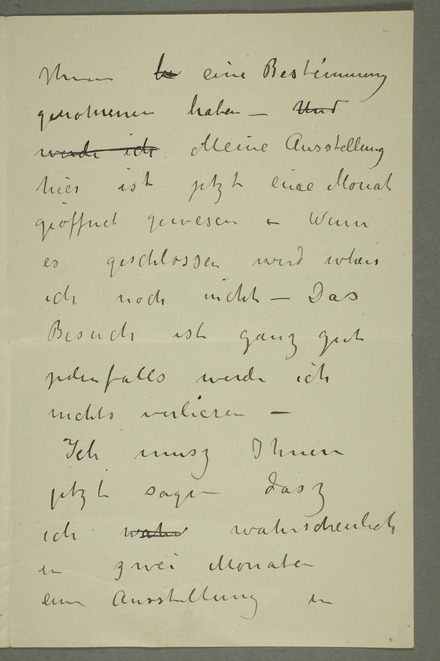 Ihnen eine Bestimmung
genommen haben – Und
werde ich Meine Ausstellung
hier ist jetzt eine Monat
geöffnet gewesen – Wann
es geschlossen wird weis
ich noch nicht – Das
Besuch ist ganz gut
jedenfalls werde ich
nichts verlieren –
Ich musz Ihnen
jetzt sagen dasz
ich wahr wahrscheinlich
in zwei Monaten
eine Ausstellung in